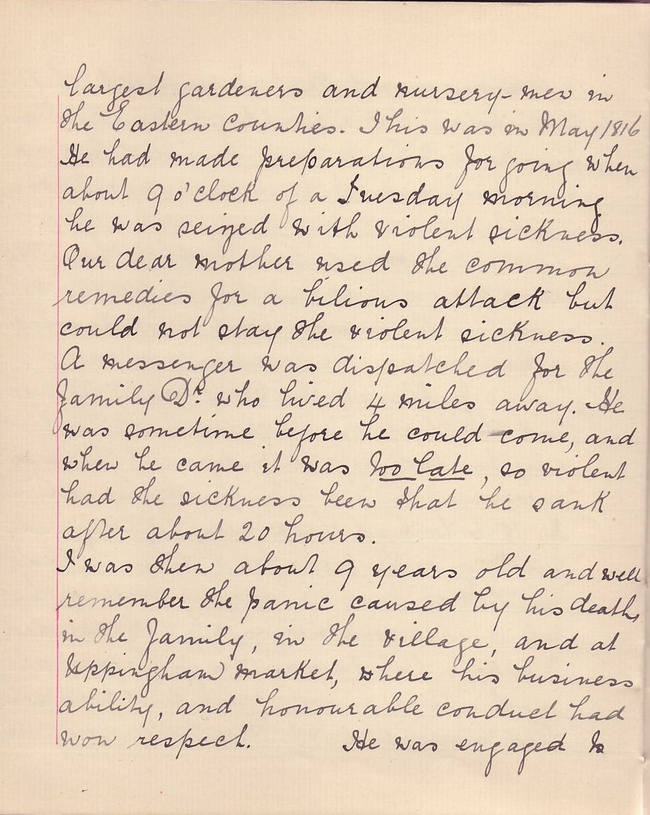 largest gardeners and nursery-men in
the Eastern Counties. This was in May 1816
He had made preparations for going when
about 9 o'clock of a Tuesday morning
he was seized with violent sickness.
Our dear mother used the common
remedies for a bilious attack but
could not stay the violent sickness.
A messenger was dispatched for the
family Dr. who lived 4 miles away. He
was sometime before he could come, and
when he came it was too late, so violent
had the sickness been that he sank
after about 20 hours.
I was then about 9 years old and well
remember the panic caused by his death,
in the family, in the village, and at
Uppingham market, where his business
ability, and honourable conduct had
won respect. He was engaged to